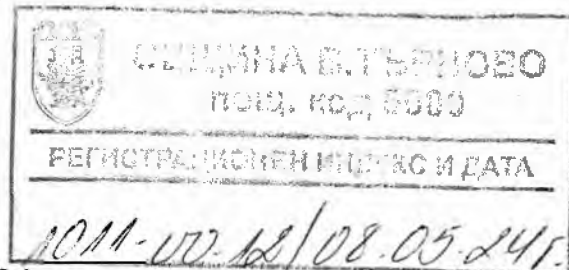 ОБЩИНА В.ТЪРНОВО
ПОЩ. КОД 5000
РЕГИСТРАЦИОНЕН ИНДЕКС И ДАТА
1011-00-12/08.05.24г.